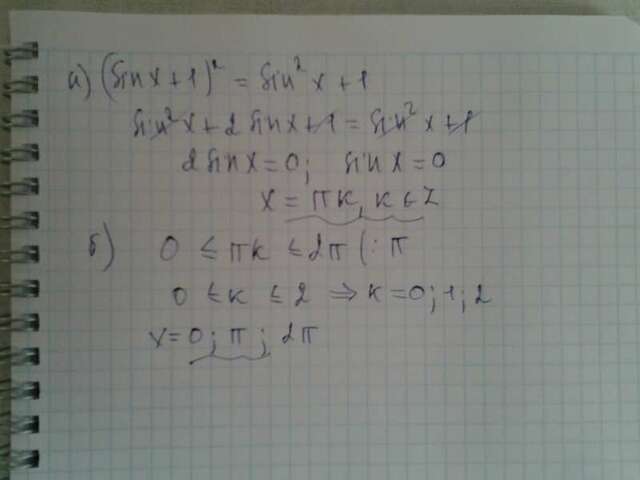 а) (sin x + 1)² = sin² x + 1
sin² x + 2 sin x + 1 = sin² x + 1
2 sin x = 0; sin x = 0
x = πk, k ∈ Z
б) 0 ≤ πk ≤ 2π (: π
0 ≤ k ≤ 2 ⇒ k = 0; 1; 2
x = 0; π; 2π